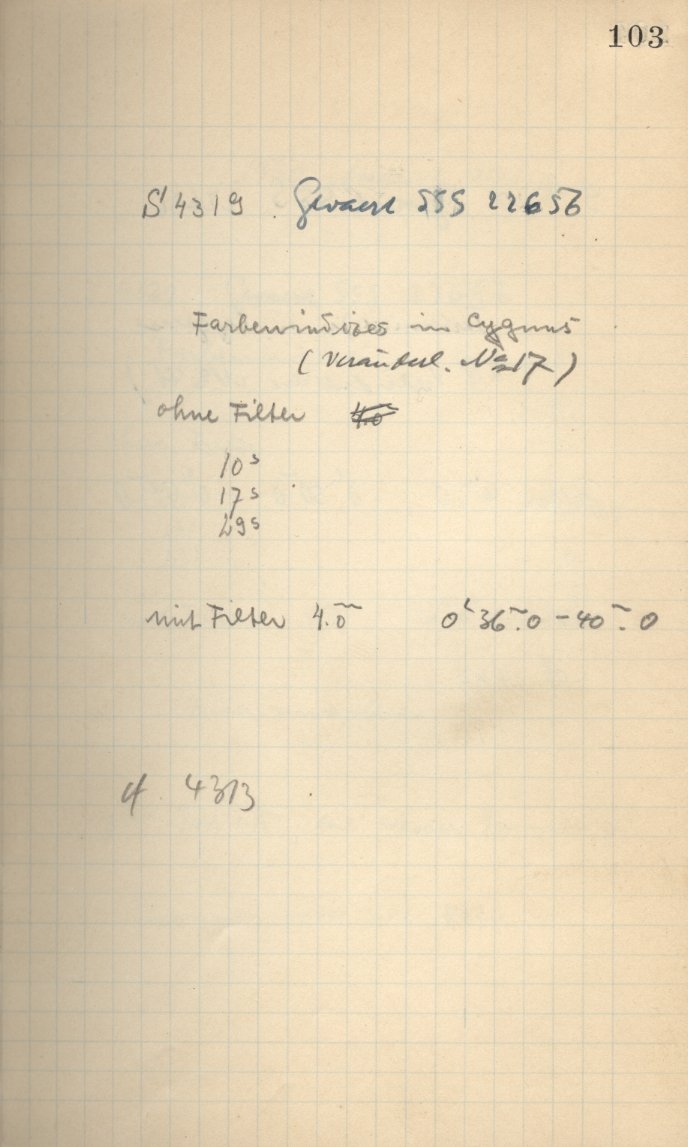 103
S 4319. Gevaert SSS 22656
Farbenindizes in Cygnus
(Veränderl. No 17)
ohne Filter 4.0
10s
17s
29s
mit Filter 4.0m 0h 36m.0 - 40m.0
cf 4313